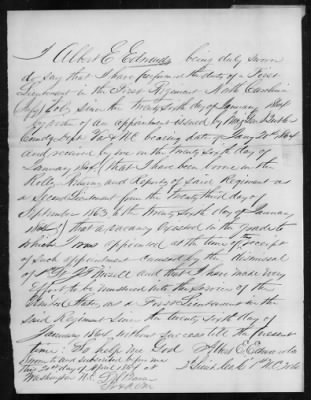 I Albert E. Edwards being duly sworn
do say that I have performed the duty of a First
Lieutenant in the First Regiment North Carolina
Vols, since the Twenty Sixth day of January 1864
by virtue of an appointment issued by
Comdg Dept Va & NC bearing date of Jany 20th 1864
and received by me on the Twenty Sixth day of
January 1864, that I have been borne in the
Rolls, Returns and Reports of said Regiment as
a Second Lieutenant from the Twenty third day of
September 1863, to the Twenty Sixth day of January
1864, that a vacancy existed in the grade to
which I was appointed at the time of the receipt
of such appointment caused by the dismissal
of and that I have made every
effort to be mustered into the service of the
United States as a First Lieutenant in the
said Regiment since the twenty sixth day of
January 1864, without success till the present
time. So help me God Albert E. Edwards
Sworn to and subscribed before me 1st Lieut 1st N.C. Vols
this 20th day of April 1864 at
Washington N.C.